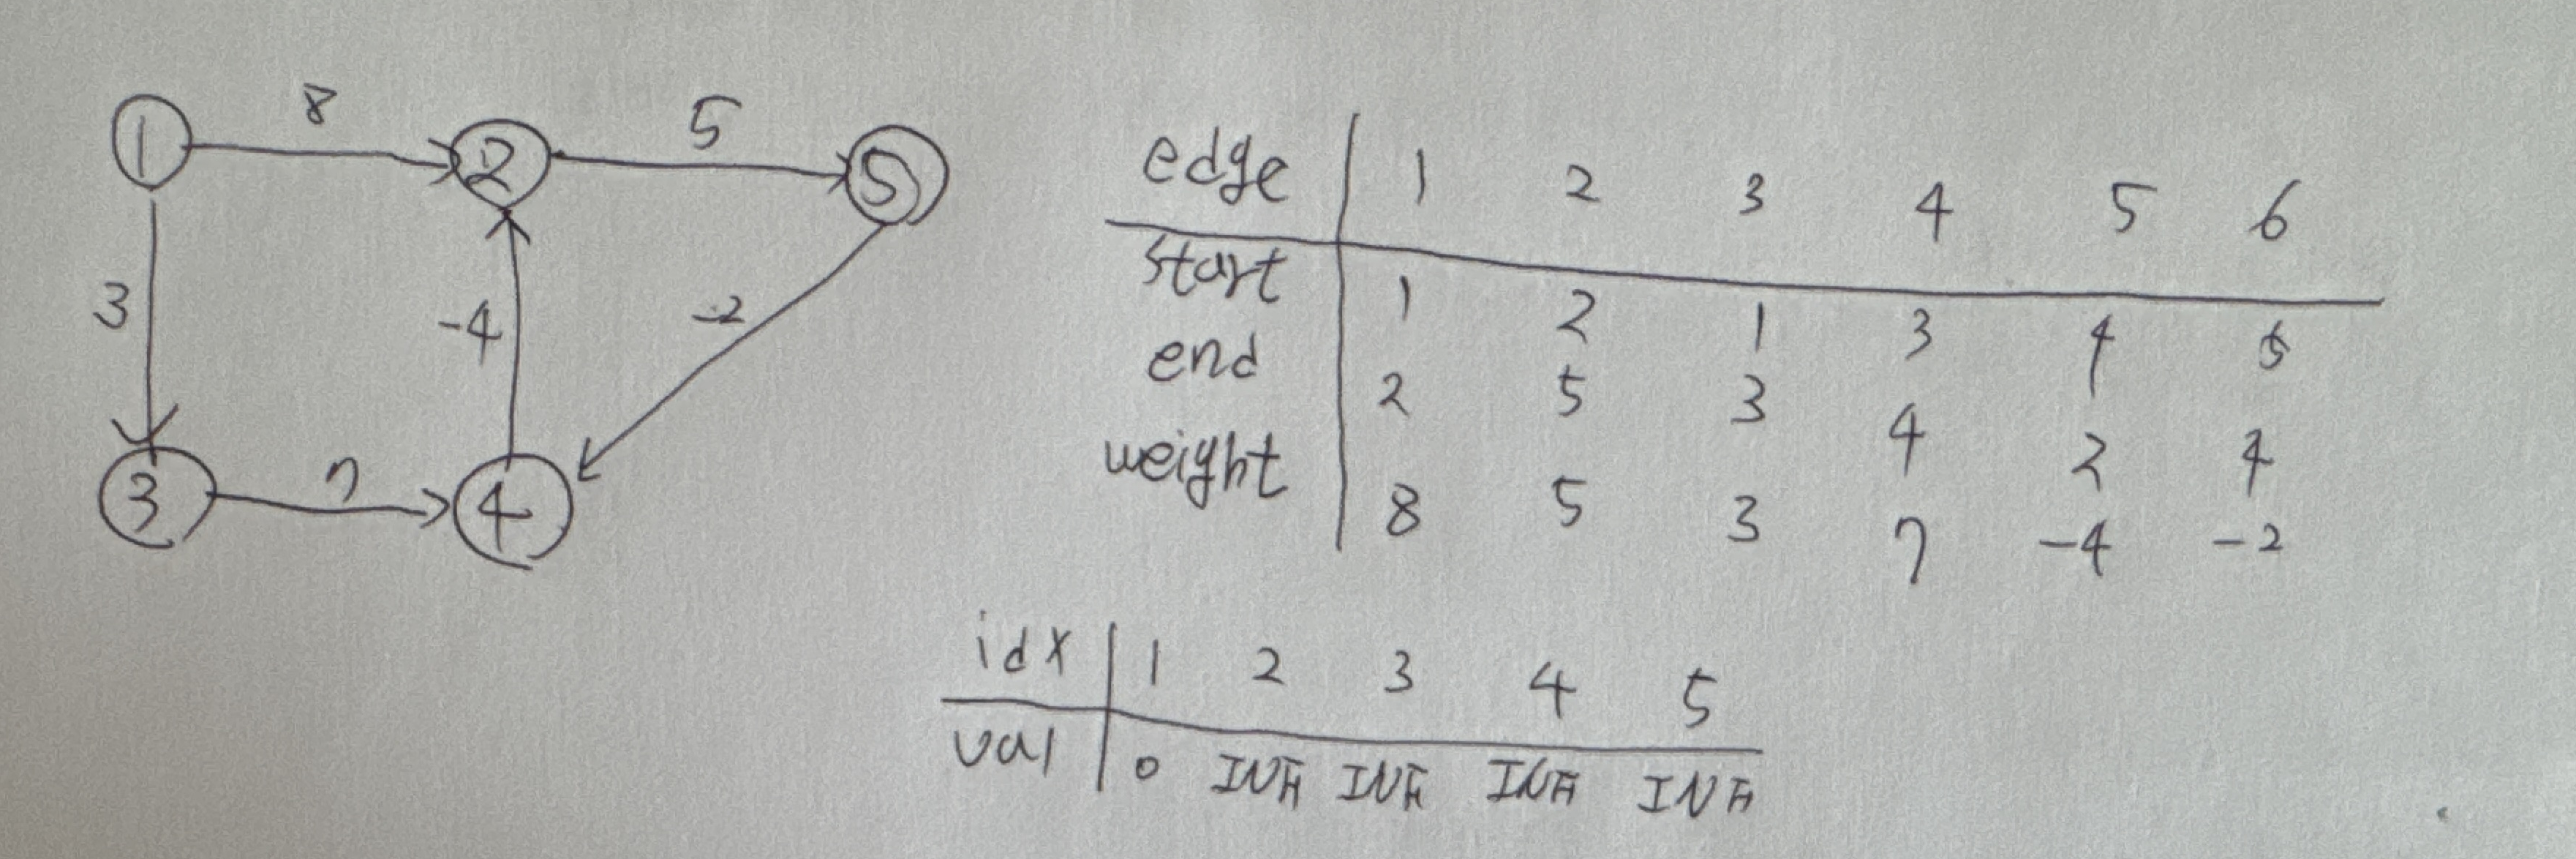 8 5
1 2 5
3 -4 -2
3 7 4
edge 1 2 3 4 5 6
start 1 2 1 3 4 5
end 2 5 3 4 2 4
weight 8 5 3 7 -4 -2
idx 1 2 3 4 5
val 0 INF INF INF INF